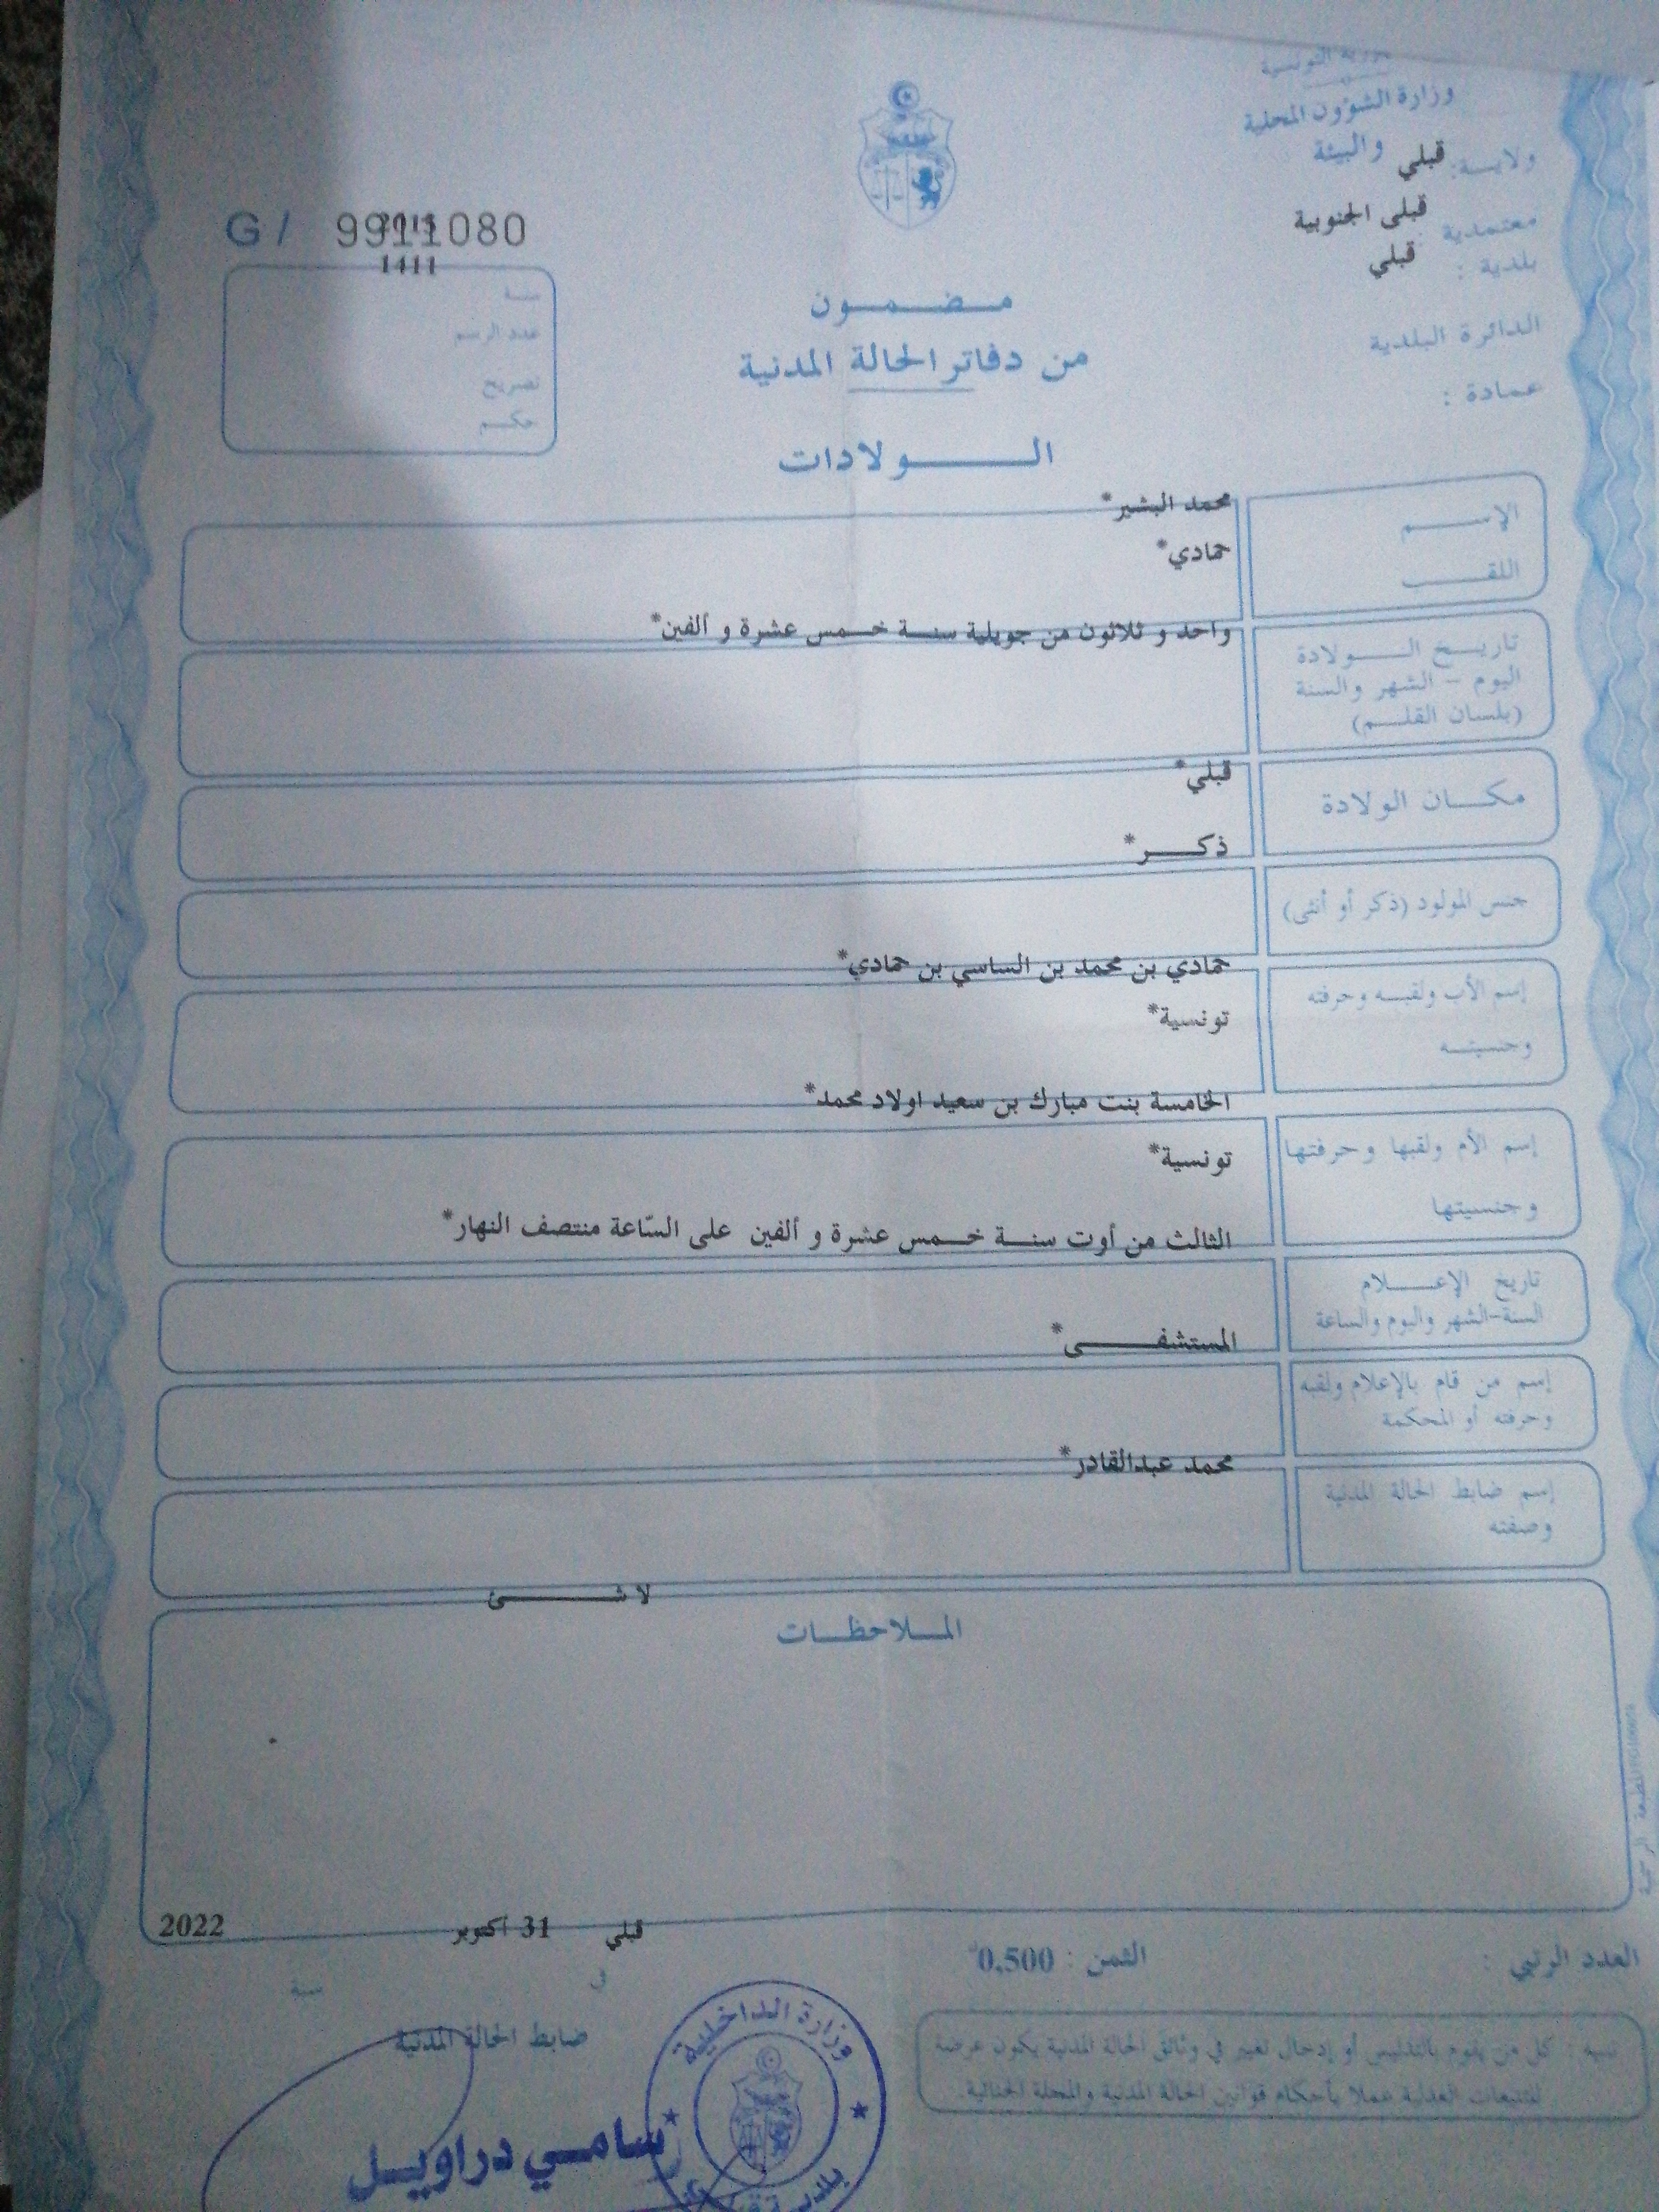 وزارة الشؤون المحلية
والبيئة
ولايـــة: قبلي
معتمدية : قبلي الجنوبية
بلدية : قبلي
الدائرة البلدية
عمادة :
G / 9911080
1411
سنة
عدد الرسم
تصريح
حكــم
مـــضـــمـــون
من دفاتر الحالة المدنية
الـــــولادات
الإســـــم
محمد البشير*
اللقـــــب
حمادي*
تاريـــخ الـــــولادة
اليوم - الشهر والسنة
(بلسان القلـــم)
واحد و ثلاثون من جويلية سنـــة خـــمس عشرة و ألفين*
مكـــان الولادة
قبلي*
جنس المولود (ذكر أو أنثى)
ذكـــر*
إسم الأب ولقبـــه وحرفته
حمادي بن محمد بن الساسي بن حمادي*
وجنسيتـــه
تونسية*
إسم الأم ولقبها وحرفتها
الخامسة بنت مبارك بن سعيد اولاد محمد*
وجنسيتها
تونسية*
تاريخ الإعـــــلام
السنة-الشهر واليوم والساعة
الثالث من أوت سنـــة خـــمس عشرة و ألفين على السّاعة منتصف النهار*
إسم من قام بالإعلام ولقبه
وحرفته أو المحكمة
المستشفـــــى*
إسم ضابط الحالة المدنية
وصفته
محمد عبدالقادر*
لا شـــــئ
المـــلاحظـــات
قبلي 31 أكتوبر 2022
في سنة
العدد الرتبي :
الثمن : 0,500
ضابط الحالة المدنية
تنبيه : كل من يقوم بالتدليس أو إدخال تغيير في وثائق الحالة المدنية يكون عرضة
للتتبعات العدلية عملا بأحكام قوانين الحالة المدنية والمجلة الجنائية.
وزارة الداخلية
سامـــي دراويـــل
بلدية